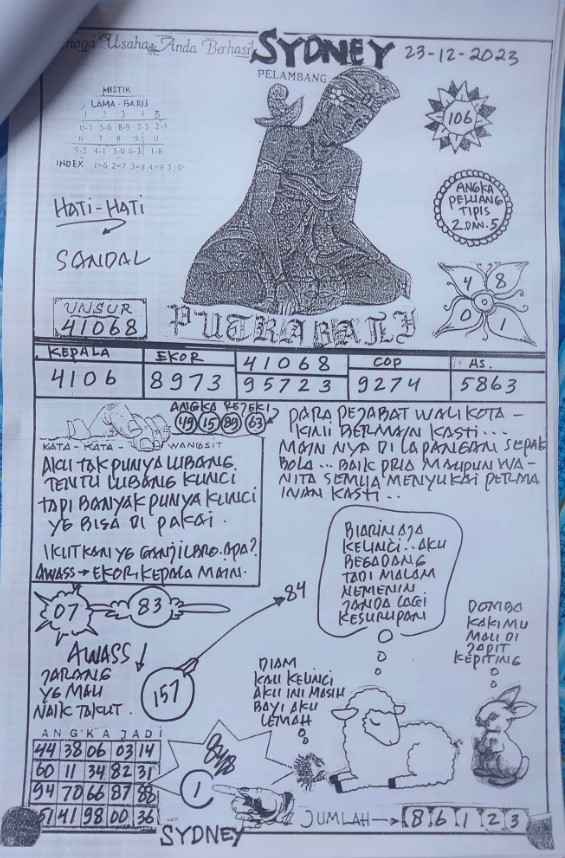 Usaha Anda Berhasil
SYDNEY
23-12-2023
PELAMBANG
MISTIK
LAMA - BARU
1 2 3 4 5
6 7 8 9 0
INDEX 1=6 2=7 3=8 4=9 5=0
106
HATI-HATI
SANDAL
ANGKA
PELUANG
TIPIS
2 DAN 5
4 8
0 1
UNSUR
41068
PUTRA BALI
KEPALA EKOR 41068 COP AS.
4106 8973 95723 9274 5863
ANGKA REJEKI
49 15 89 63
KATA - KATA - WANGSIT
AKU TAK PUNYA LUBANG.
TENTU LUBANG KUNCI
TAPI BANYAK PUNYA KUNCI
YG BISA DI PAKAI.
IKUTKAN YG GANJIL BRO. APA?
AWASS → EKOR KEPALA MAIN.
PARA PEJABAT WALIKOTA -
KINI BERMAIN KASTI...
MAIN NYA DI LAPANGAN SEPAK
BOLA... BAIK PRIA MAUPUN WA-
NITA SEMUA MENYUKAI PERMA
INAN KASTI..
BIARIN AJA
KELINCI.. AKU
BEGADANG
TADI MALAM
NEMENIN
JANDA LAGI
KESURUPAN
07 83
84
AWASS!
JARANG
YG MAU
NAIK TAKUT.
157
DIAM
KAU KELINCI
AKU INI MASIH
BAYI AKU
LEMAH
DOMBA
KAKIMU
MAU DI
JAPIT
KEPITING
ANGKA JADI
44 38 06 03 14
60 11 34 82 31
94 70 66 87 88
51 41 98 00 36
1
JUMLAH → 8 6 1 2 3
SYDNEY